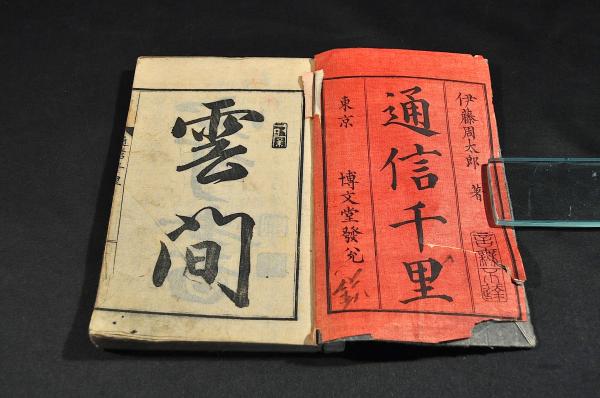 伊藤周太郎 著
通信千里
東京 博文堂發兌
雲間
通信千里